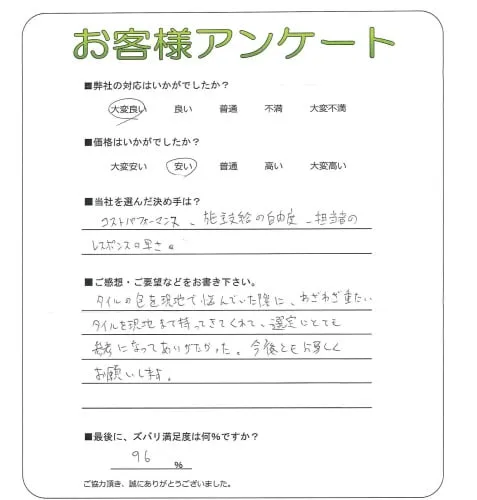 お客様アンケート
■弊社の対応はいかがでしたか？
大変良い 良い 普通 不満 大変不満
■価格はいかがでしたか？
大変安い 安い 普通 高い 大変高い
■当社を選んだ決め手は？
コストパフォーマンス、施主支給の自由度、担当者の
レスポンスの早さ。
■ご感想・ご要望などをお書き下さい。
タイルの色を現地で悩んでいた際に、わざわざ重たい
タイルを現地まで持ってきてくれて、選定にとても
参考になってありがたかった。今後ともよろしく
お願いします。
■最後に、ズバリ満足度は何%ですか？
96 %
ご協力頂き、誠にありがとうございました。